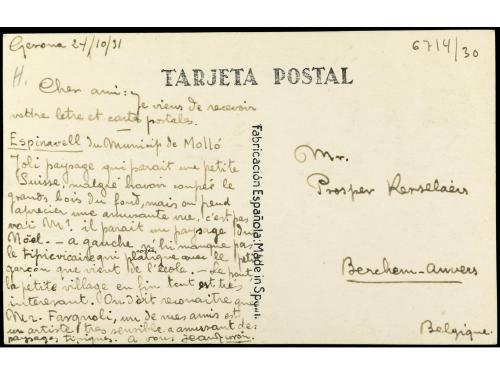 Gerona 24/10/31
6714/30
H.
TARJETA POSTAL
Cher ami: Je viens de recevoir
vottre letre et carte postales.
Espinavell du Municip de Molló
Joli paysage qui parait une petite
Suisse, malgré havoir coupée le
grands bois du fond, mais on peud
aprecier une amusante vue, c'est pas
vrai Mr. il parait un paysage du
Noel. - a gauche, ni lui manque pas
le tipic vicaire qui platique avec le petit
garçon que vient de l'école. - Le pont,
la petite village en fin tout est très
interesant. On doit reconaitre que
Mr. Fargnoli, un de mes amis est
un artiste très sensible a amusant des
paysages tipiques. a vous
Fabricación Española: Made in Spain.
Mr.
Prosper Kerselaërs
Berchem-Anvers
Belgique.